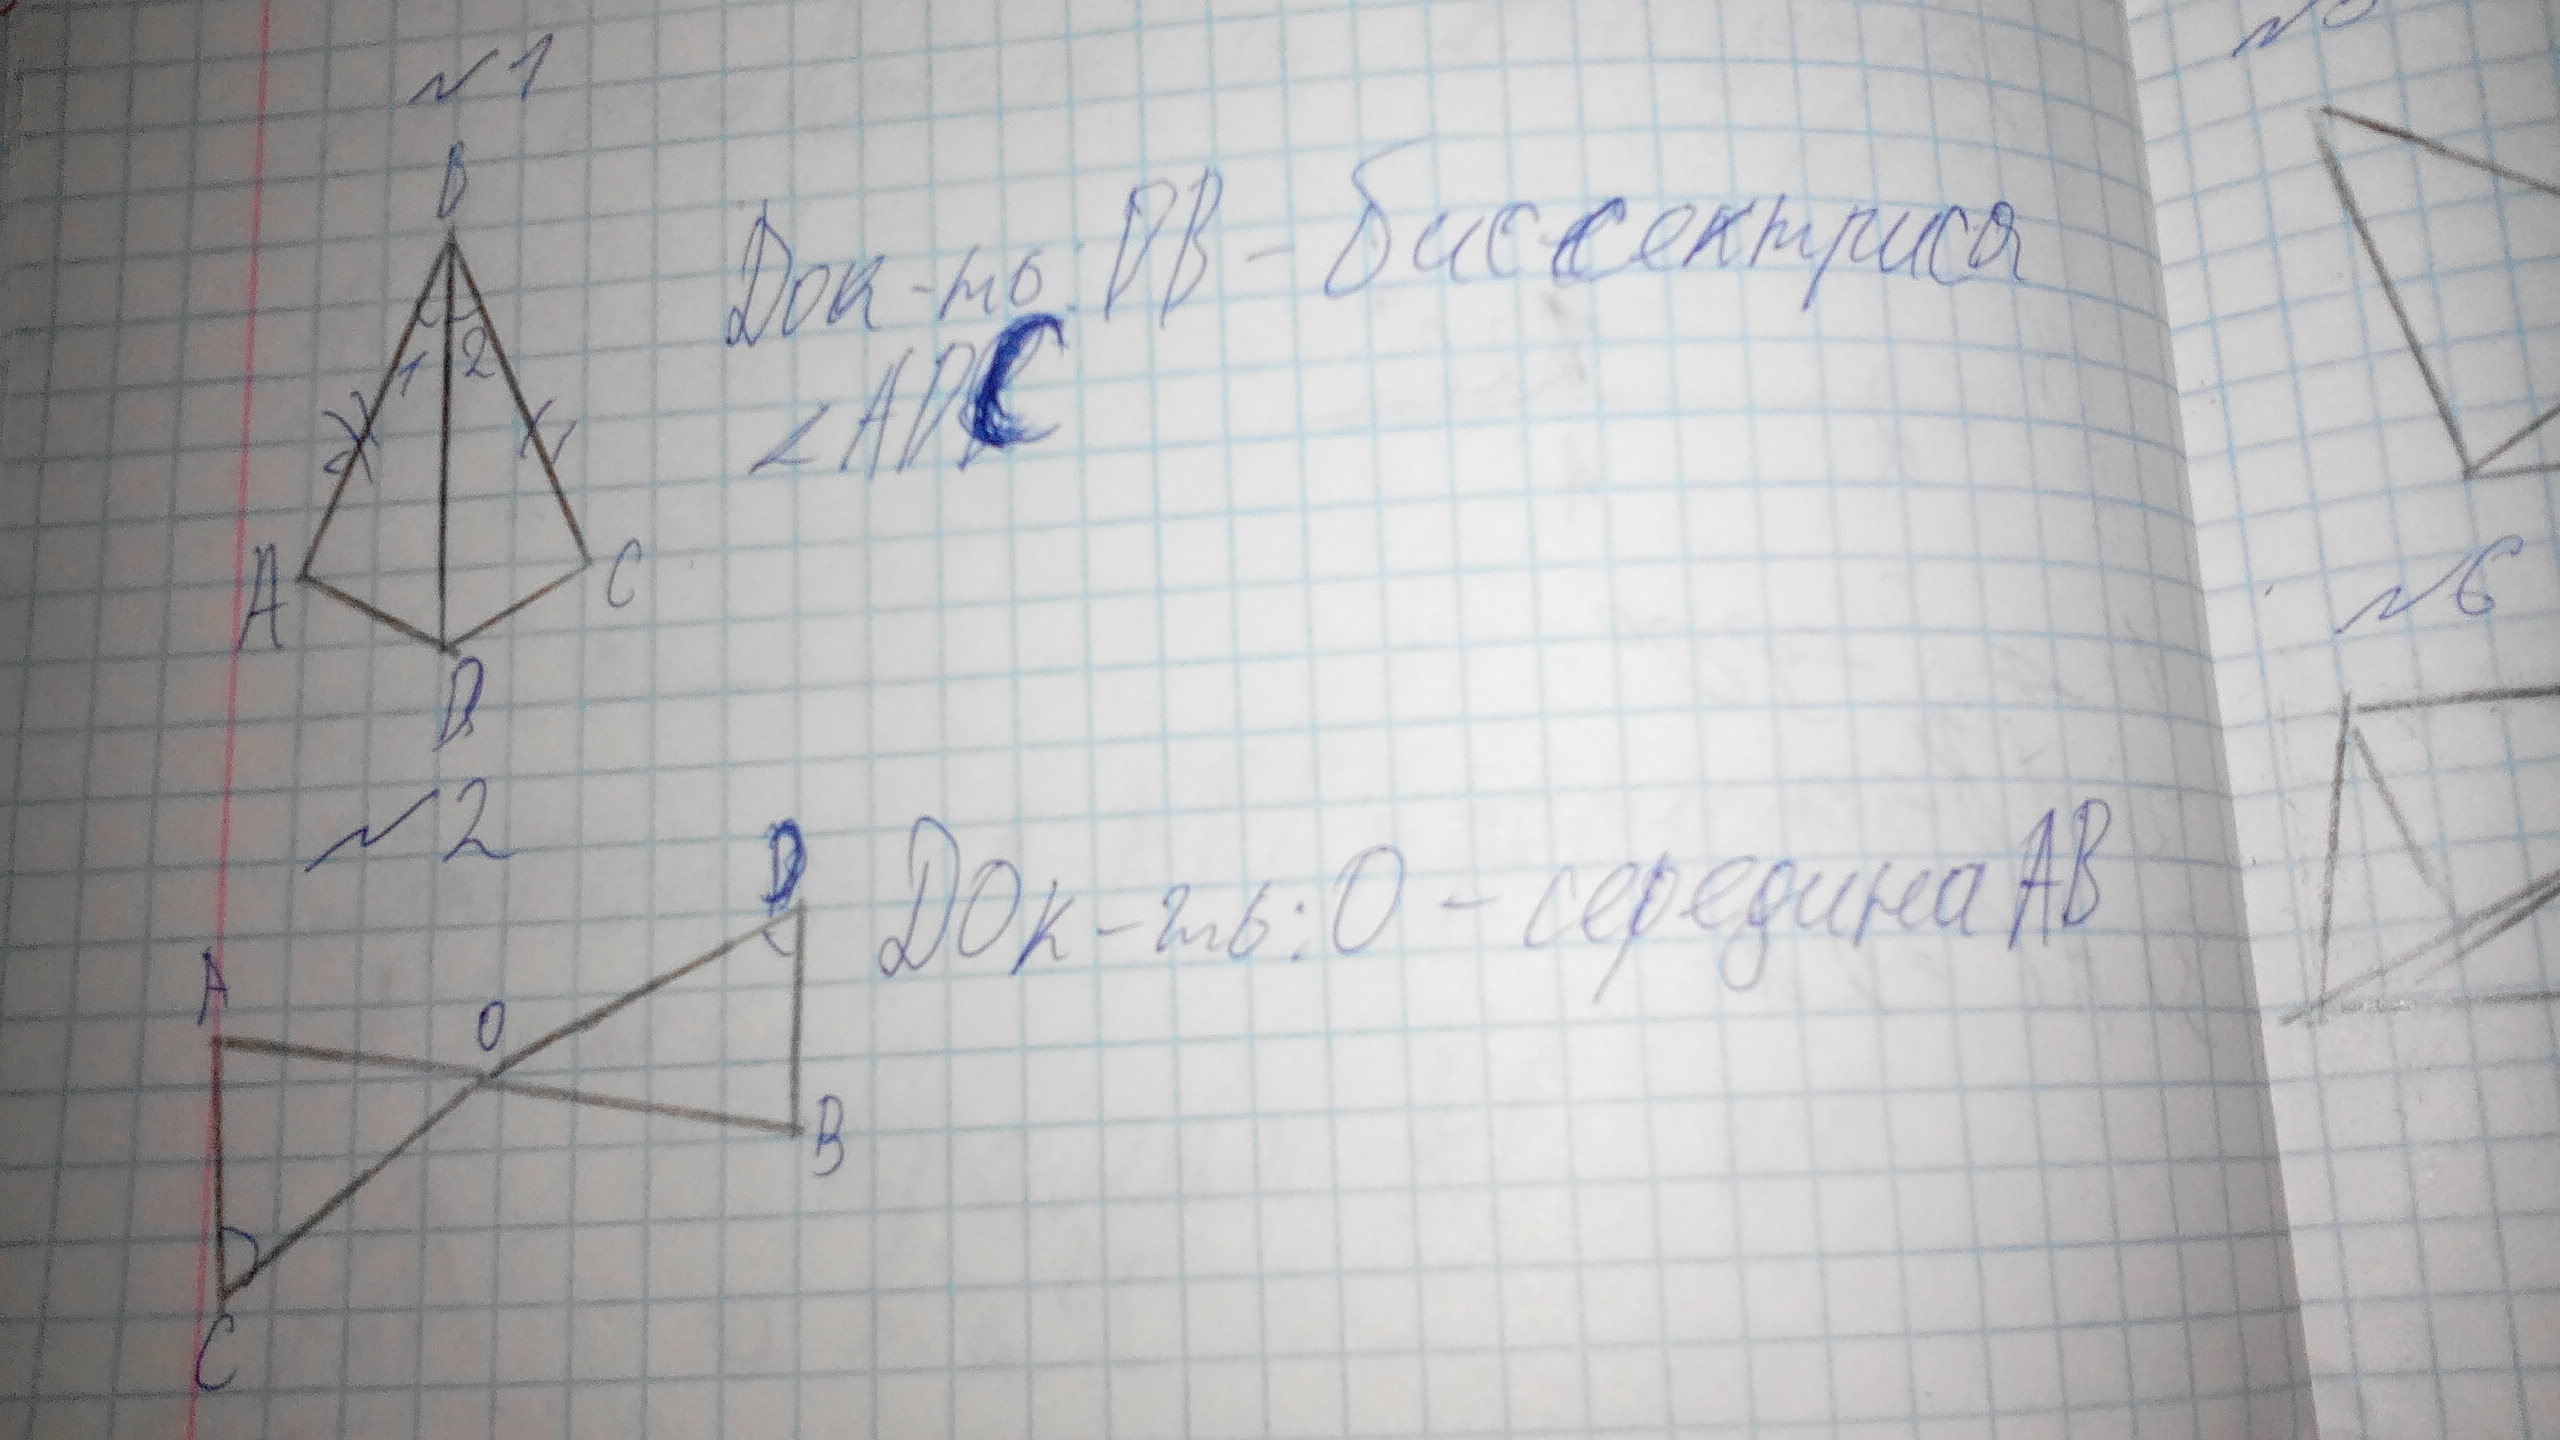 №1
B
Док-ть: DB - биссектриса
<ADC
1 2
A
C
D
№2
D
Док-ть: O - середина AB
A
O
B
C
№6